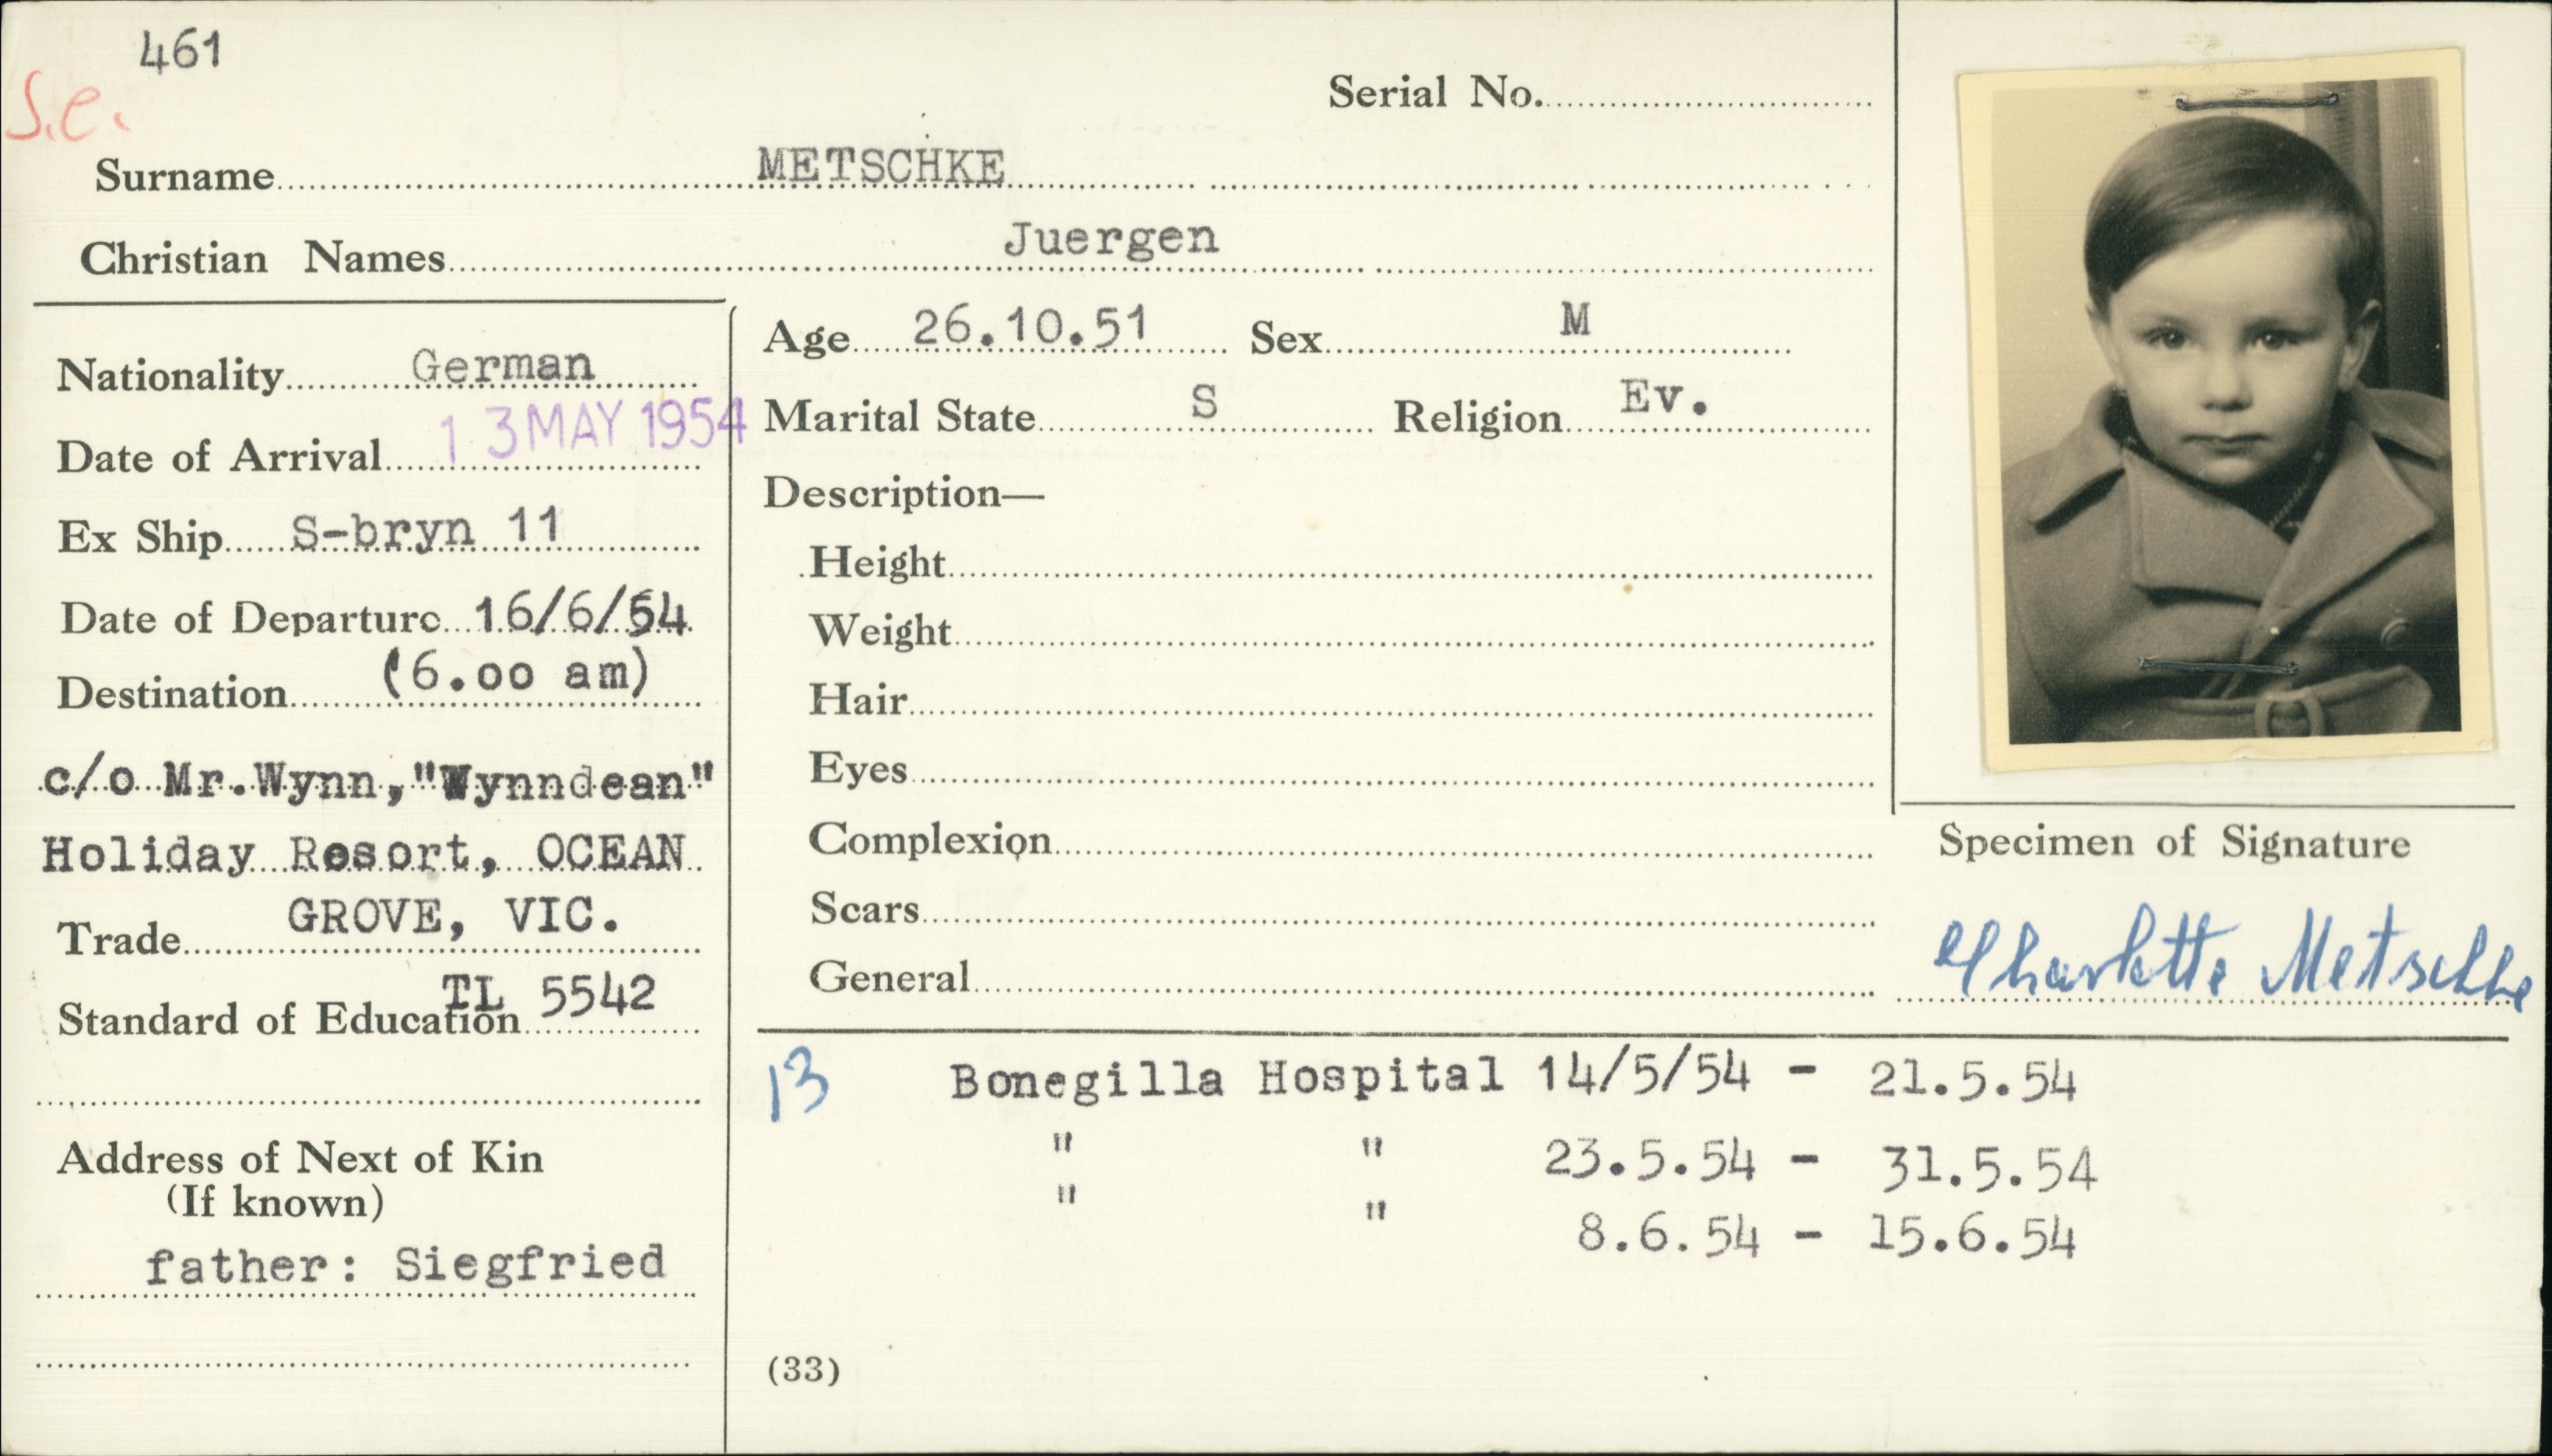 461
S.C.
Serial No.
Surname METSCHKE
Christian Names Juergen
Nationality German
Date of Arrival 13 MAY 1954
Ex Ship S-bryn 11
Date of Departure 16/6/54
Destination (6.00 am)
c/o Mr.Wynn,"Wynndean"
Holiday Resort, OCEAN
GROVE, VIC.
Trade
TL 5542
Standard of Education
Address of Next of Kin
(If known)
father: Siegfried
Age 26.10.51 Sex M
Marital State S Religion Ev.
Description—
Height
Weight
Hair
Eyes
Complexion
Scars
General
Specimen of Signature
Charlotte Metschke
13 Bonegilla Hospital 14/5/54 - 21.5.54
" " 23.5.54 - 31.5.54
" " 8.6.54 - 15.6.54
(33)